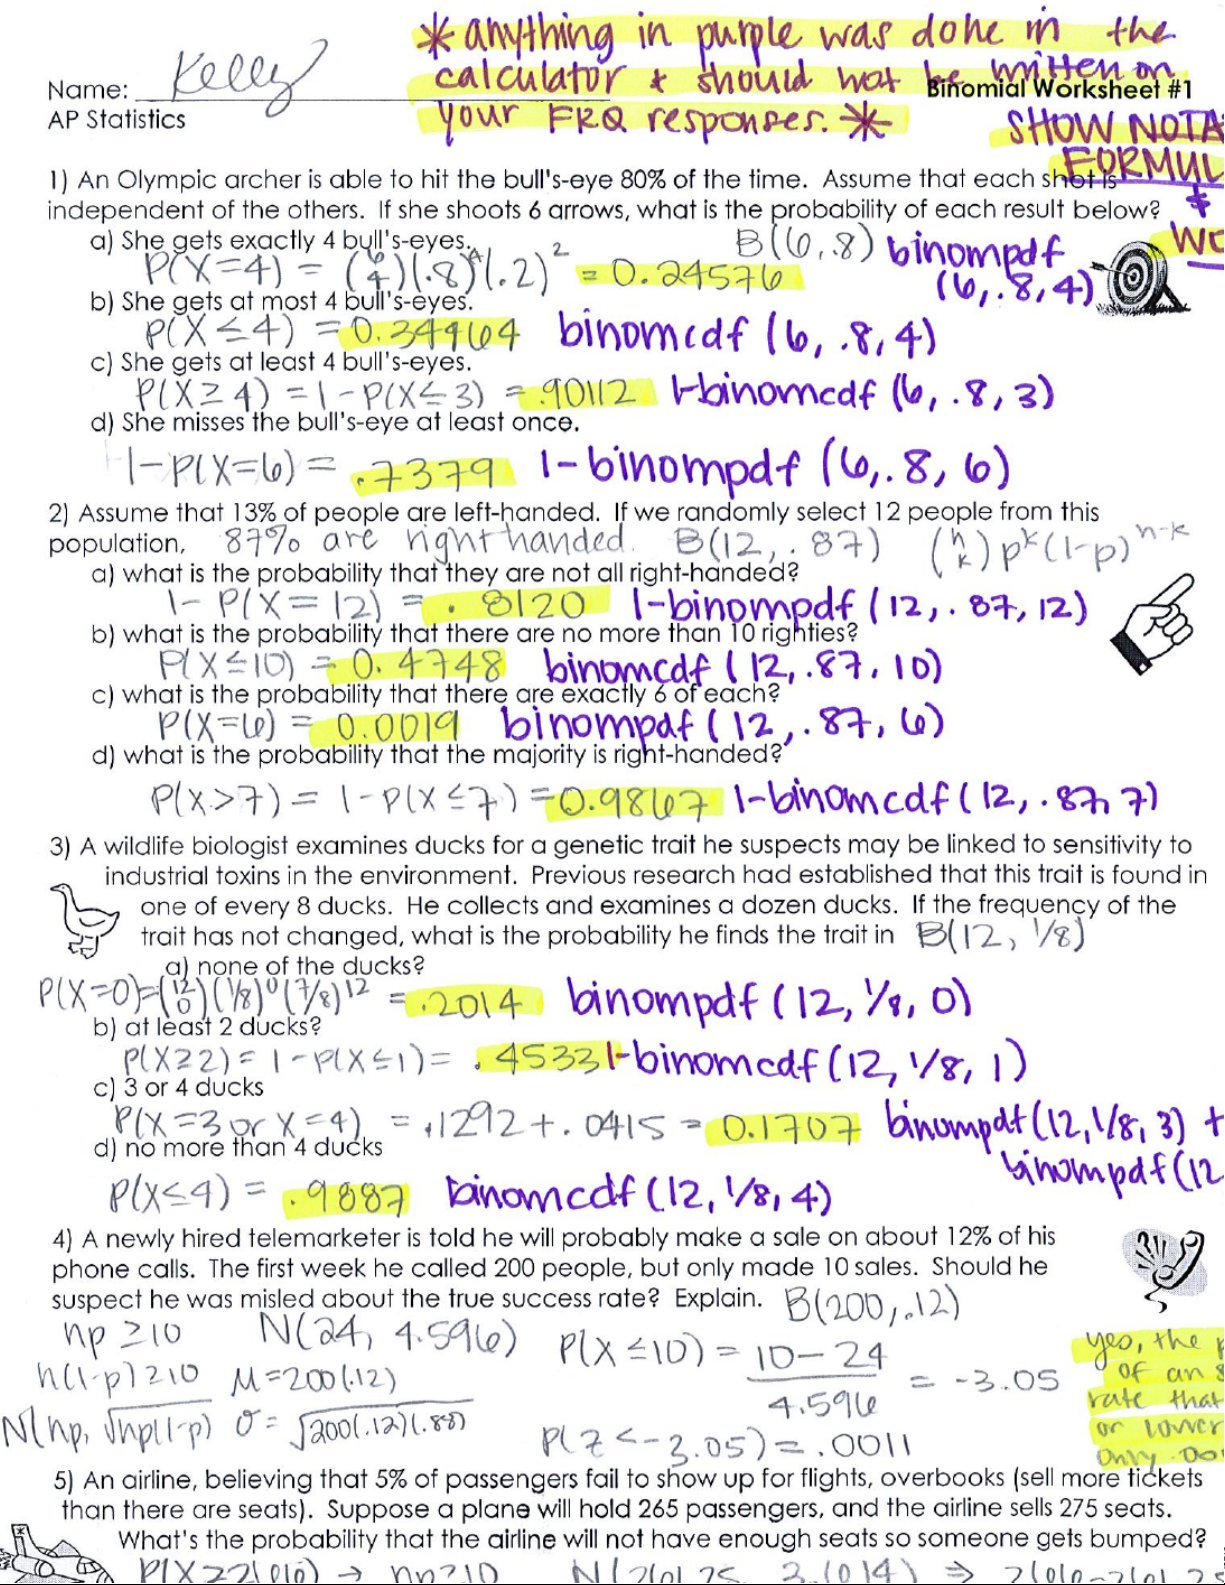 * anything in purple was done in the
calculator & should not be written on
your FRQ responses. *
Name: Kelly
Binomial Worksheet #1
AP Statistics
SHOW NOTA
FORMUL
&
WO
1) An Olympic archer is able to hit the bull's-eye 80% of the time. Assume that each shot is
independent of the others. If she shoots 6 arrows, what is the probability of each result below?
a) She gets exactly 4 bull's-eyes. B(6,.8) binompdf
P(X=4) = (6 4)(.8)^4(.2)^2 = 0.24576 (6,.8,4)
b) She gets at most 4 bull's-eyes.
P(X≤4) = 0.34464 binomcdf (6, .8, 4)
c) She gets at least 4 bull's-eyes.
P(X≥4) = 1-P(X≤3) = .90112 1-binomcdf (6, .8, 3)
d) She misses the bull's-eye at least once.
1-P(X=6) = .7379 1-binompdf (6,.8, 6)
2) Assume that 13% of people are left-handed. If we randomly select 12 people from this
population, 87% are right handed. B(12,.87) (n k) p^k(1-p)^n-k
a) what is the probability that they are not all right-handed?
1- P(X=12) = .8120 1-binompdf (12,.87,12)
b) what is the probability that there are no more than 10 righties?
P(X≤10) = 0.4748 binomcdf (12,.87,10)
c) what is the probability that there are exactly 6 of each?
P(X=6) = 0.0019 binompdf (12,.87,6)
d) what is the probability that the majority is right-handed?
P(X>7) = 1-P(X≤7) = 0.9867 1-binomcdf (12,.87,7)
3) A wildlife biologist examines ducks for a genetic trait he suspects may be linked to sensitivity to
industrial toxins in the environment. Previous research had established that this trait is found in
one of every 8 ducks. He collects and examines a dozen ducks. If the frequency of the
trait has not changed, what is the probability he finds the trait in B(12, 1/8)
a) none of the ducks?
P(X=0)=(12 0)(1/8)^0(7/8)^12 = .2014 binompdf (12, 1/8, 0)
b) at least 2 ducks?
P(X≥2) = 1-P(X≤1) = .4533 1-binomcdf (12, 1/8, 1)
c) 3 or 4 ducks
P(X=3 or X=4) = .1292+.0415 = 0.1707 binompdf (12,1/8,3) +
d) no more than 4 ducks binompdf(12
P(X≤4) = .9887 binomcdf (12, 1/8, 4)
4) A newly hired telemarketer is told he will probably make a sale on about 12% of his
phone calls. The first week he called 200 people, but only made 10 sales. Should he
suspect he was misled about the true success rate? Explain. B(200,.12)
np ≥10 N(24, 4.596) P(X≤10) = 10-24 / 4.596 = -3.05
n(1-p)≥10 μ=200(.12)
N(np, √np(1-p)) σ=√200(.12)(.88) P(Z<-3.05)=.0011
yes, the p
of an s
rate that
or lower
only .00
5) An airline, believing that 5% of passengers fail to show up for flights, overbooks (sell more tickets
than there are seats). Suppose a plane will hold 265 passengers, and the airline sells 275 seats.
What's the probability that the airline will not have enough seats so someone gets bumped?
P(X≥266) → np≥10 N(261.25, 3.614) ⇒ 266-261.25